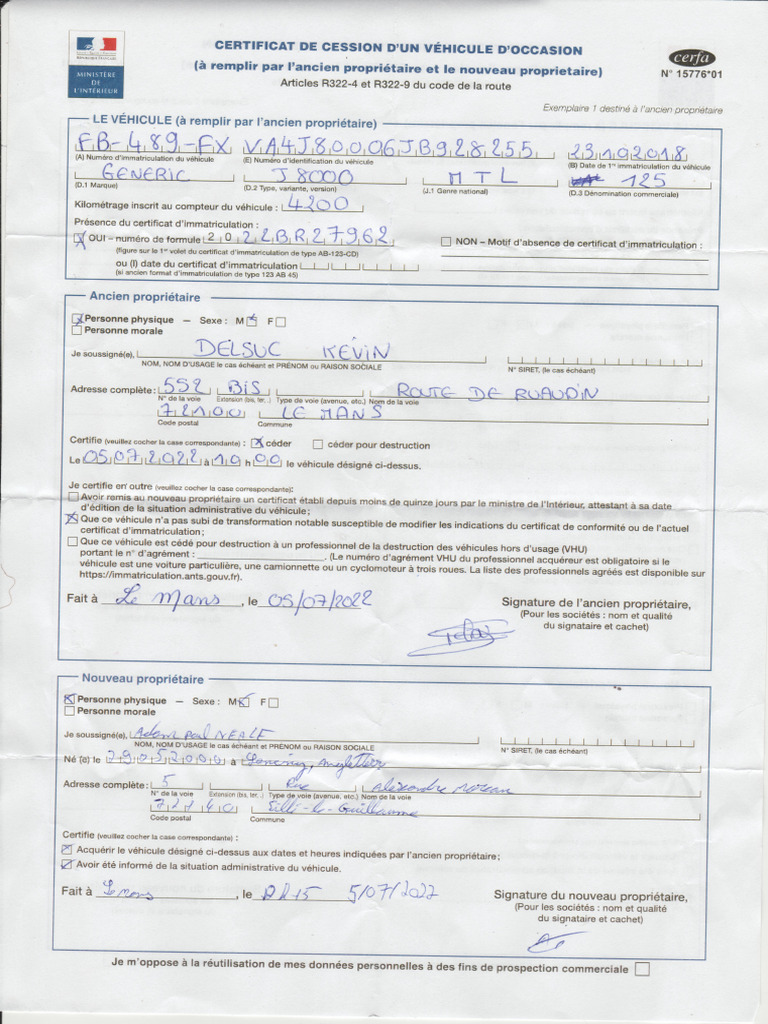 CERTIFICAT DE CESSION D'UN VÉHICULE D'OCCASION
(à remplir par l'ancien propriétaire et le nouveau proprietaire)
Articles R322-4 et R322-9 du code de la route
RÉPUBLIQUE FRANÇAISE
MINISTÈRE
DE
L'INTÉRIEUR
cerfa
N° 15776*01
Exemplaire 1 destiné à l'ancien propriétaire
LE VÉHICULE (à remplir par l'ancien propriétaire)
FB-489-FX VA4J80006JB928255 23102018
(A) Numéro d'immatriculation du véhicule (E) Numéro d'identification du véhicule (B) Date de 1re immatriculation du véhicule
GENERIC J8000 MTL 125
(D.1 Marque) (D.2 Type, variante, version) (J.1 Genre national) (D.3 Dénomination commerciale)
Kilométrage inscrit au compteur du véhicule : 4200
Présence du certificat d'immatriculation :
OUI – numéro de formule 2022BR27962 NON – Motif d'absence de certificat d'immatriculation :
(figure sur le 1er volet du certificat d'immatriculation de type AB-123-CD)
ou (I) date du certificat d'immatriculation
(si ancien format d'immatriculation de type 123 AB 45)
Ancien propriétaire
Personne physique – Sexe : M F
Personne morale
Je soussigné(e), DELSUC KEVIN
NOM, NOM D'USAGE le cas échéant et PRÉNOM ou RAISON SOCIALE N° SIRET, (le cas échéant)
Adresse complète : 552 BIS ROUTE DE RUAUDIN
N° de la voie Extension (bis, ter...) Type de voie (avenue, etc.) Nom de la voie
72100 LE MANS
Code postal Commune
Certifie (veuillez cocher la case correspondante) : céder céder pour destruction
Le 05072022 à 19 h 00 le véhicule désigné ci-dessus.
Je certifie en outre (veuillez cocher la case correspondante):
Avoir remis au nouveau propriétaire un certificat établi depuis moins de quinze jours par le ministre de l'Intérieur, attestant à sa date
d'édition de la situation administrative du véhicule;
Que ce véhicule n'a pas subi de transformation notable susceptible de modifier les indications du certificat de conformité ou de l'actuel
certificat d'immatriculation;
Que ce véhicule est cédé pour destruction à un professionnel de la destruction des véhicules hors d'usage (VHU)
portant le n° d'agrément : (Le numéro d'agrément VHU du professionnel acquéreur est obligatoire si le
véhicule est une voiture particulière, une camionnette ou un cyclomoteur à trois roues. La liste des professionnels agréés est disponible sur
https://immatriculation.ants.gouv.fr).
Fait à Le Mans, le 05/07/2022 Signature de l'ancien propriétaire,
(Pour les sociétés : nom et qualité
du signataire et cachet)
Nouveau propriétaire
Personne physique – Sexe : M F
Personne morale
Je soussigné(e), Adam paul NEALE
NOM, NOM D'USAGE le cas échéant et PRÉNOM ou RAISON SOCIALE N° SIRET, (le cas échéant)
Né (e) le 29052000 à Angleterre
Adresse complète : 5 Rue alexandre moreau
N° de la voie Extension (bis, ter...) Type de voie (avenue, etc.) Nom de la voie
72140 Sillé-le-Guillaume
Code postal Commune
Certifie (veuillez cocher la case correspondante) :
Acquérir le véhicule désigné ci-dessus aux dates et heures indiquées par l'ancien propriétaire;
Avoir été informé de la situation administrative du véhicule.
Fait à Le mans, le 5/07/2022 Signature du nouveau propriétaire,
(Pour les sociétés : nom et qualité
du signataire et cachet)
Je m'oppose à la réutilisation de mes données personnelles à des fins de prospection commerciale